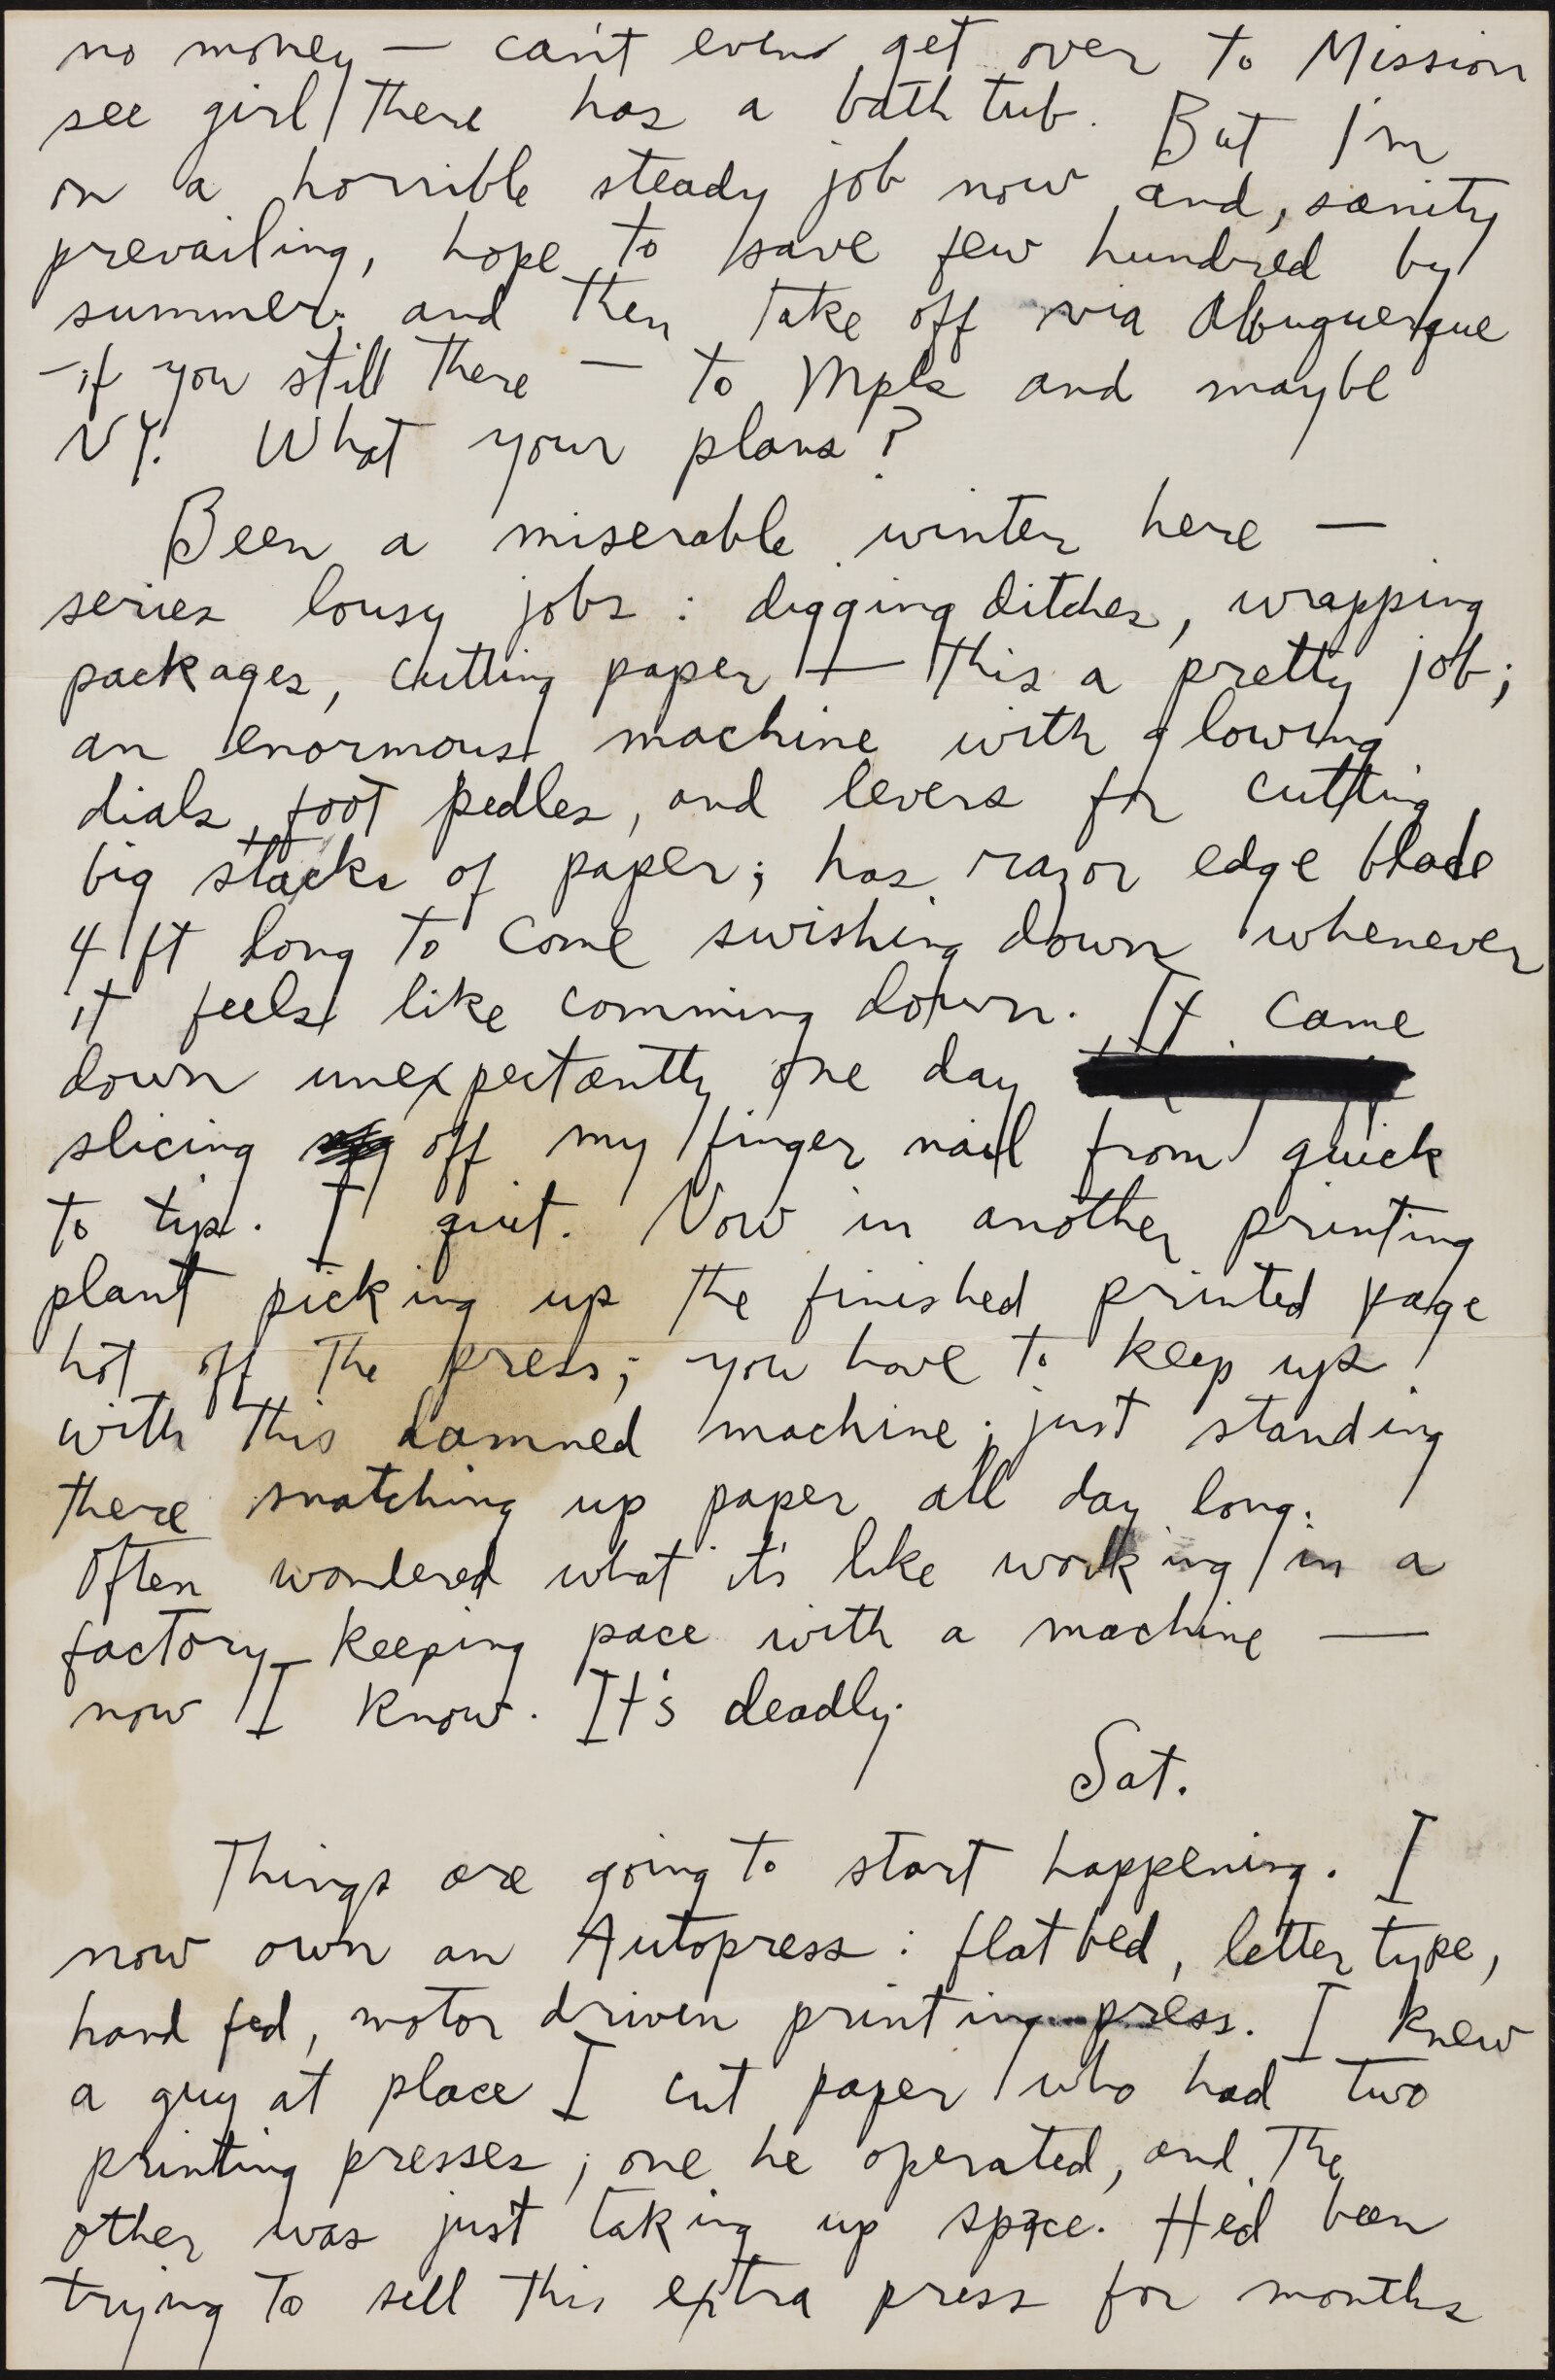 no money — can't even get over to Mission
see girl there has a bath tub. But I'm
on a horrible steady job now and, sanity
prevailing, hope to save few hundred by
summer; and then take off via Albuquerque
—if you still there — to Mpls and maybe
NY. What your plans?
Been a miserable winter here —
series lousy jobs: digging ditches, wrapping
packages, cutting paper — this a pretty job;
an enormous machine with glowing
dials, foot pedles, and levers for cutting
big stacks of paper; has razor edge blade
4 ft long to come swishing down whenever
it feels like comming down. It came
down unexpectantly one day
slicing off my finger nail from quick
to tip. I quit. Now in another printing
plant picking up the finished printed page
hot off the press; you have to keep up
with this damned machine; just standing
there snatching up paper all day long.
Often wondered what it's like working in a
factory keeping pace with a machine —
now I know. It's deadly.
Sat.
Things are going to start happening. I
now own an Autopress: flat bed, letter type,
hand fed, motor driven printing press. I knew
a guy at place I cut paper who had two
printing presses; one he operated, and the
other was just taking up space. He'd been
trying to sell this extra press for months